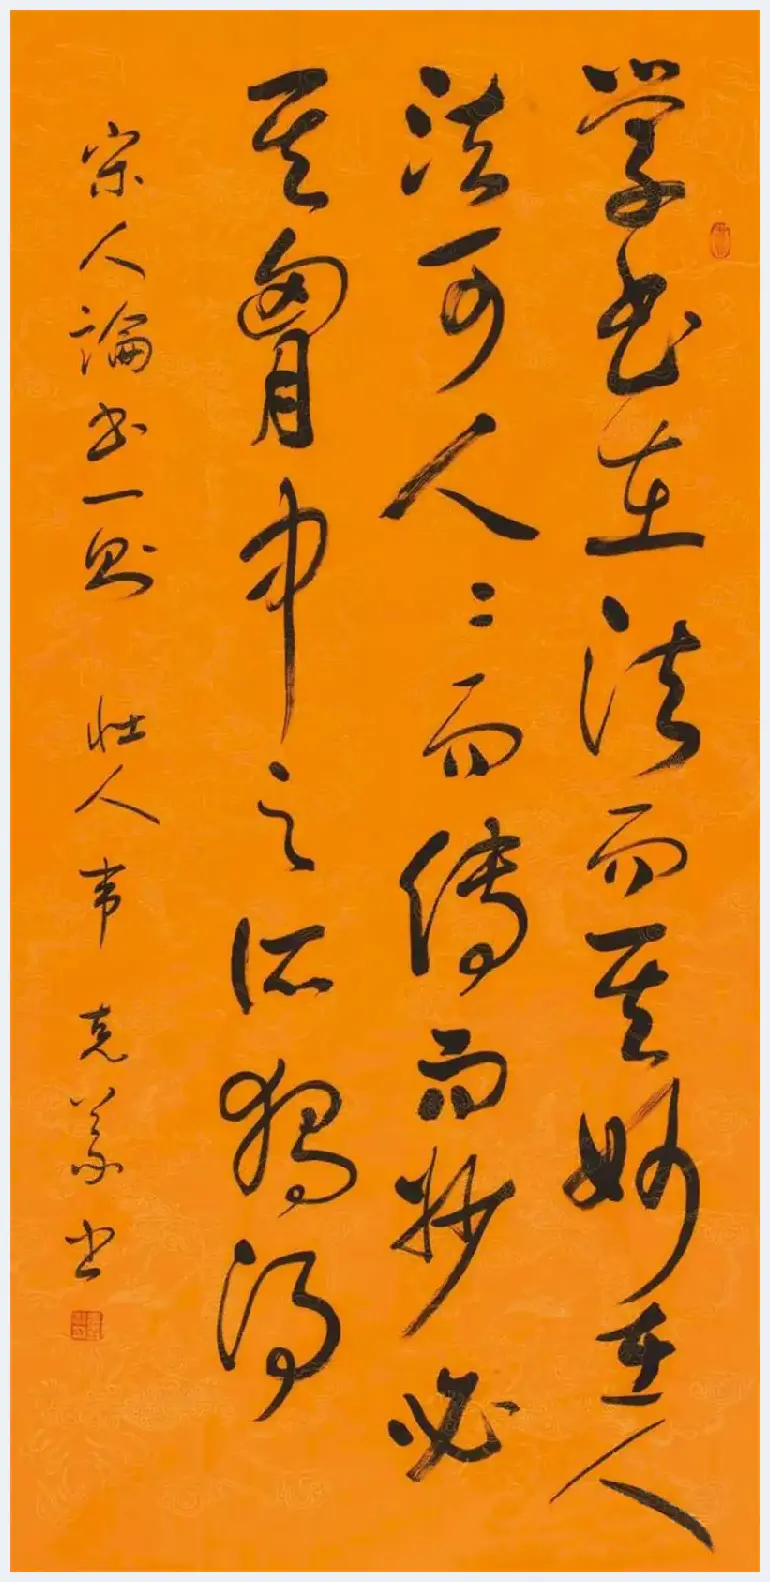 学书在法而其妙在人
法可人〻而传而妙必
其胷中之所独得
宋人論书一则 壮人韦克义书